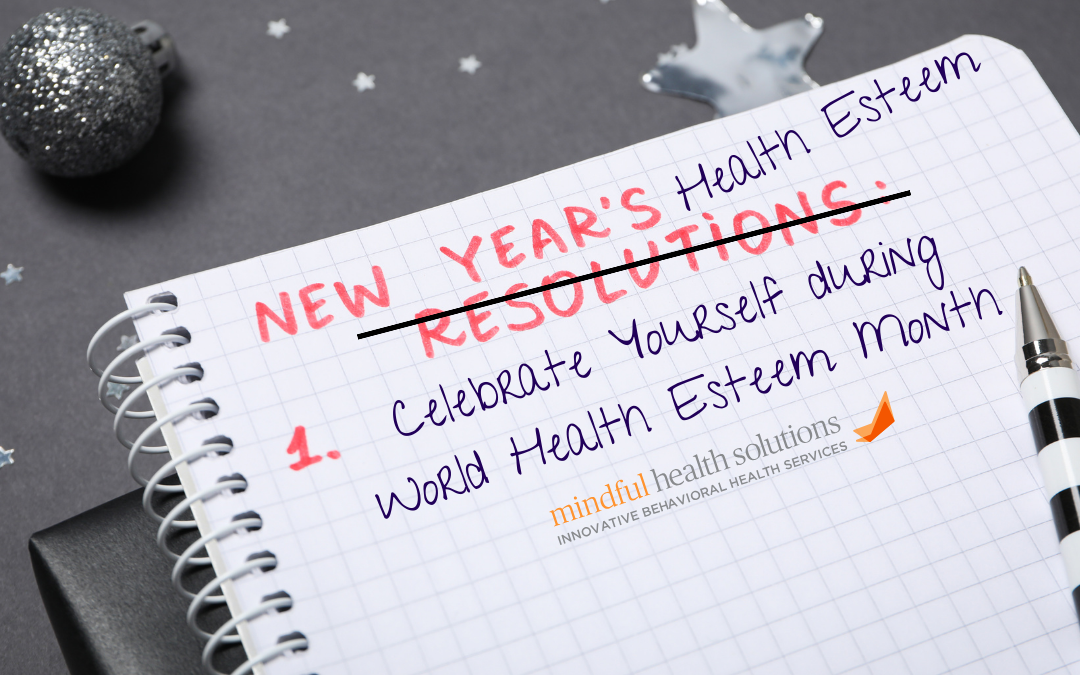 NEW YEAR'S Health Esteem
RESOLUTIONS:
1. Celebrate Yourself during
World Health Esteem Month
mindful health solutions
INNOVATIVE BEHAVIORAL HEALTH SERVICES